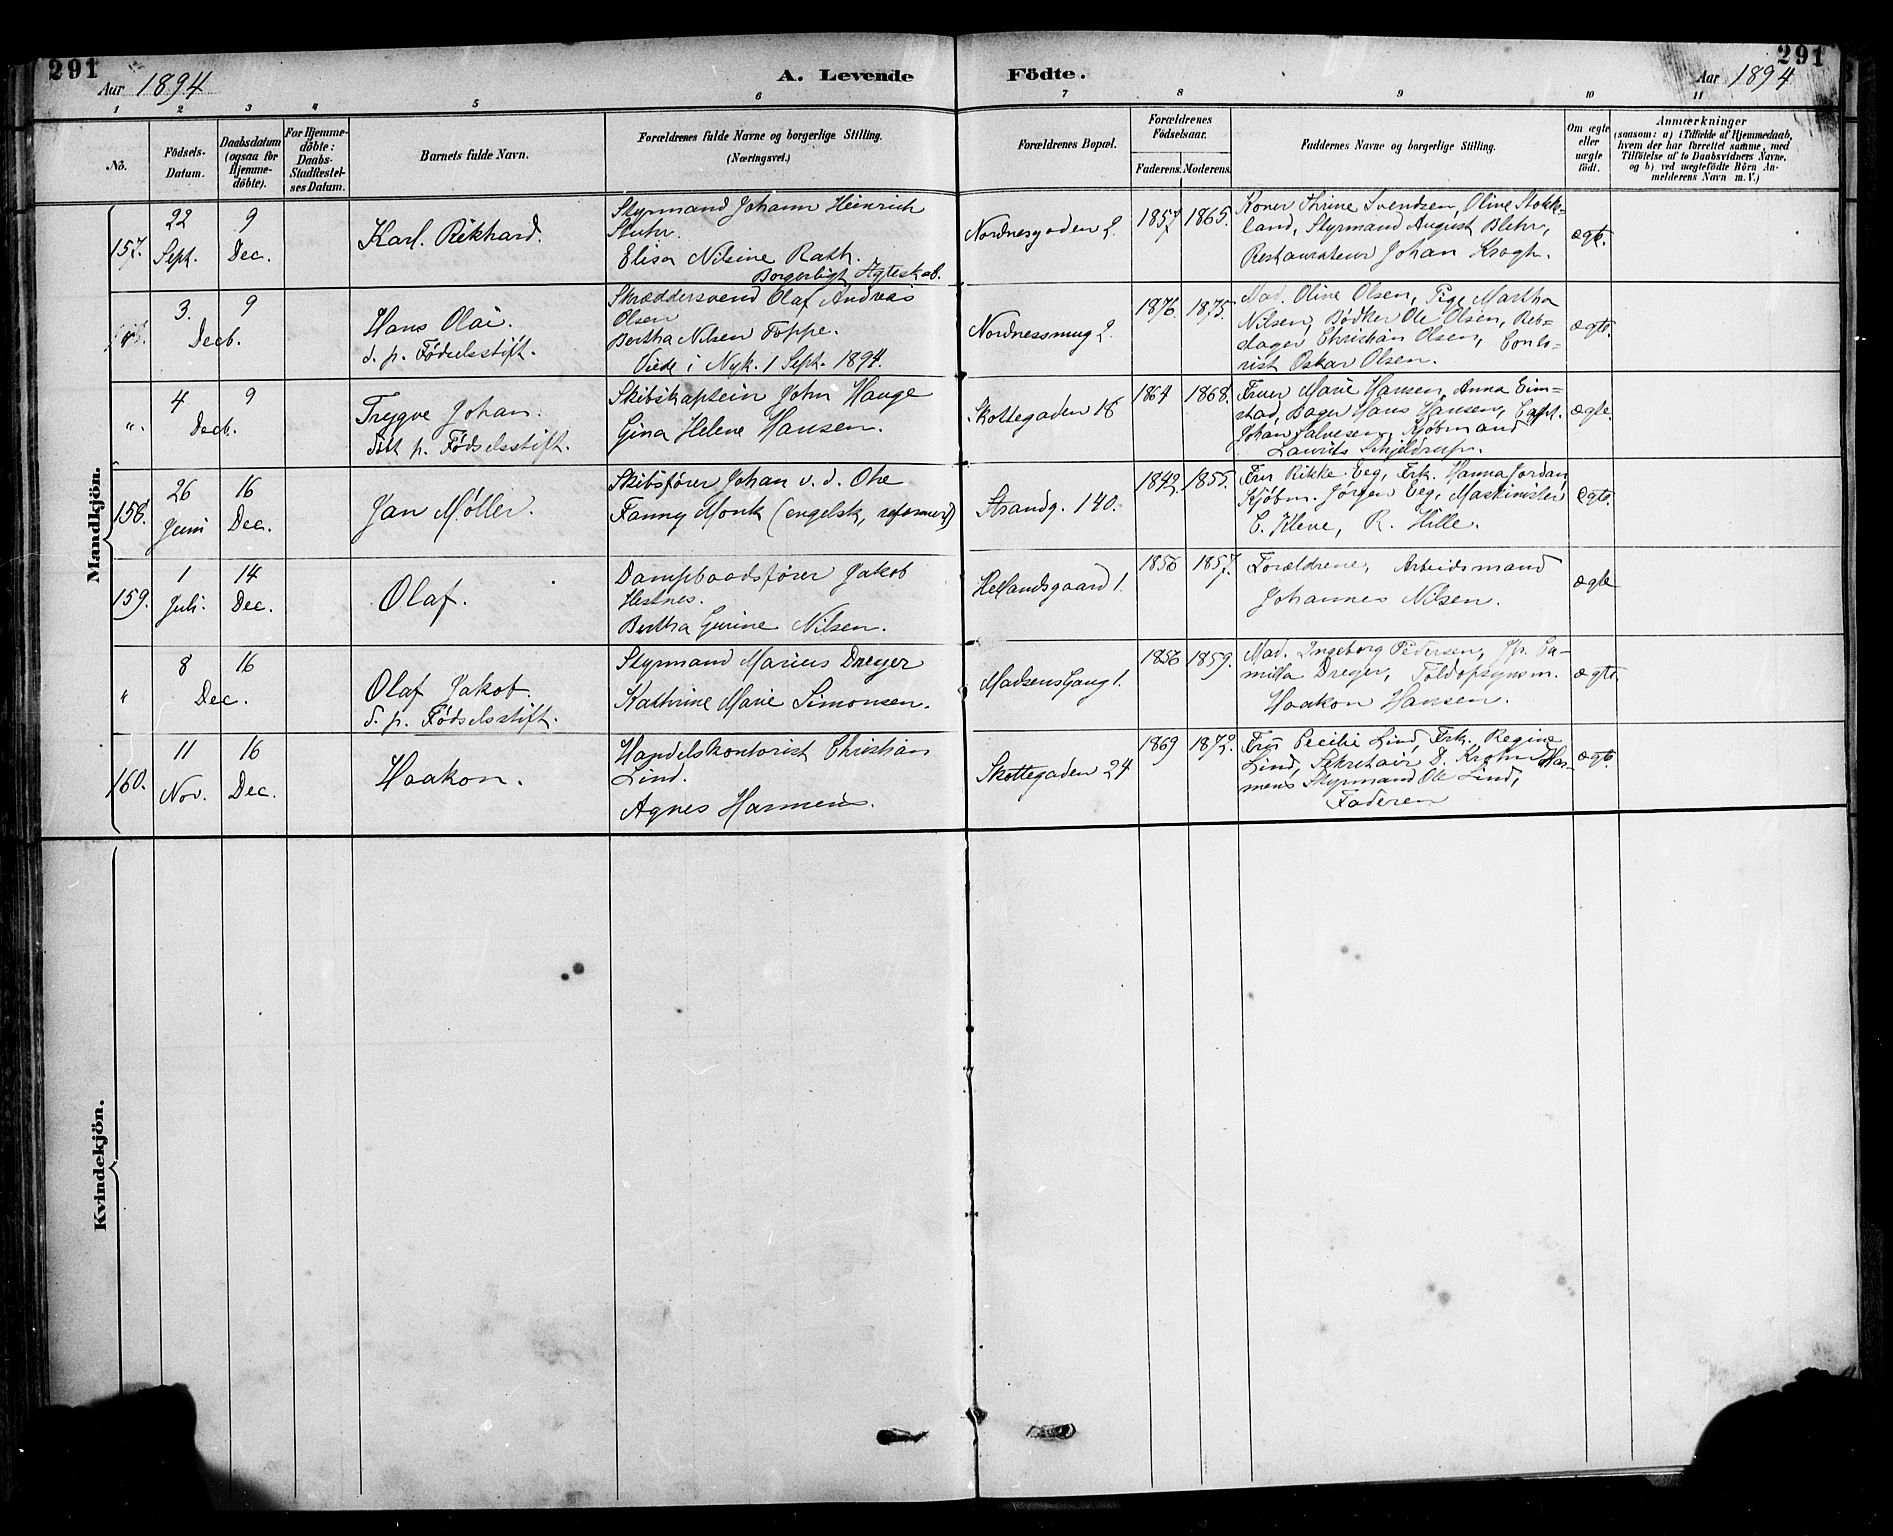 291
Aar 1894
A. Levende
Födte.
291
Aar 1894
1 2 3 4 5 6 7 8 9 10 11
No.
Födsels-
Datum.
Daabsdatum
(ogsaa for
Hjemme-
döbte).
For Hjemme-
döbte:
Daabs-
Stadfæstel-
ses Datum.
Barnets fulde Navn.
Forældrenes fulde Navne og borgerlige Stilling.
(Næringsvei.)
Forældrenes Bopæl.
Forældrenes
Födselsaar.
Faderens.
Moderens.
Faddernes Navne og borgerlige Stilling.
Om ægte
eller
uægte
födt.
Anmærkninger
(saasom: a) i Tilfælde af Hjemmedaab,
hvem der har forrettet samme, med
Tilföielse af to Daabsvidners Navne,
og b) ved uægtefödte Börn An-
melderens Navn m. V.)
Mandkjön.
157.
22
Sept.
9
Dec.
Karl Rikhard.
Styrmand Johann Heinrich
Stuhr.
Elisa Nilsine Rath.
Borgerligt Ægteskab.
Nordnesgaden 2.
1857
1865.
Koner Thrine Svendsen, Oline Stokke-
land, Styrmand August Blehr,
Restaurateur Johan Krogh.
ægte.
3.
9
Decb.
Hans Olai.
d. p. Fødselsstift.
Skræddersvend Olaf Andreas
Olsen
Bertha Nilsen Toppe.
Viede i Nyk. 1 Sept. 1894.
Nordnessmug 2.
1876.
1875.
Mad. Oline Olsen, Pige Martha
Nilsen, Bødker Ole Olsen, Reb-
slager Christian Olsen,
Oskar Olsen.
ægte.
".
4
9
Decb.
Trygve Johan.
døbt p. Fødselsstift.
Skibskaptein John Hauge
Gina Helene Hansen.
Skottegaden 18
1864
1868.
Fruer Marie Hansen, Anna Eim-
stad, Bager Hans Hansen, Capt.
Johan Salvesen, Kjøbmand
Laurits Schjeldrup.
ægte.
158.
26
Juni
16
Dec.
Jan Møller.
Skibsfører Johan v. d. Ohe
Fanny Monk (engelsk, reformert)
Strandg. 140.
1842.
1855.
Fru Rikke Eeg, Frk. Hanna Jordan
Kjøbm. Jørgen Eeg, Maskinister
C. Kleve, R. Hille.
ægte.
159.
1
Juli.
14
Dec.
Olaf.
Dampbaadsfører Jakob
Hestnes.
Bertha Gurine Nilsen.
Hellandsgaard 1.
1856
1857.
Forældrene, Arbeidsmand
Johannes Nilsen.
ægte
"
8
16
Dec.
Olaf Jakob.
d. p. Fødselsstift.
Styrmand Marius Dreyer
Kathrine Marie Simonsen.
Madsens Gang 1.
1856
1859.
Mad. Ingeborg Pedersen, Jfr. Ca-
milla Dreyer, Toldopsynsm.
Haakon Hansen.
ægte.
160.
11
Nov.
16
Dec.
Haakon.
Handelskontorist Christian
Lind.
Agnes Harmens.
Skottegaden 24
1869
1872.
Fru Cecilie Lind, Frk. Regine
Lind, Sekretair D. Krohn Har-
mens, Styrmand Ole Lind,
Faderen
ægte.
Kvindekjön.